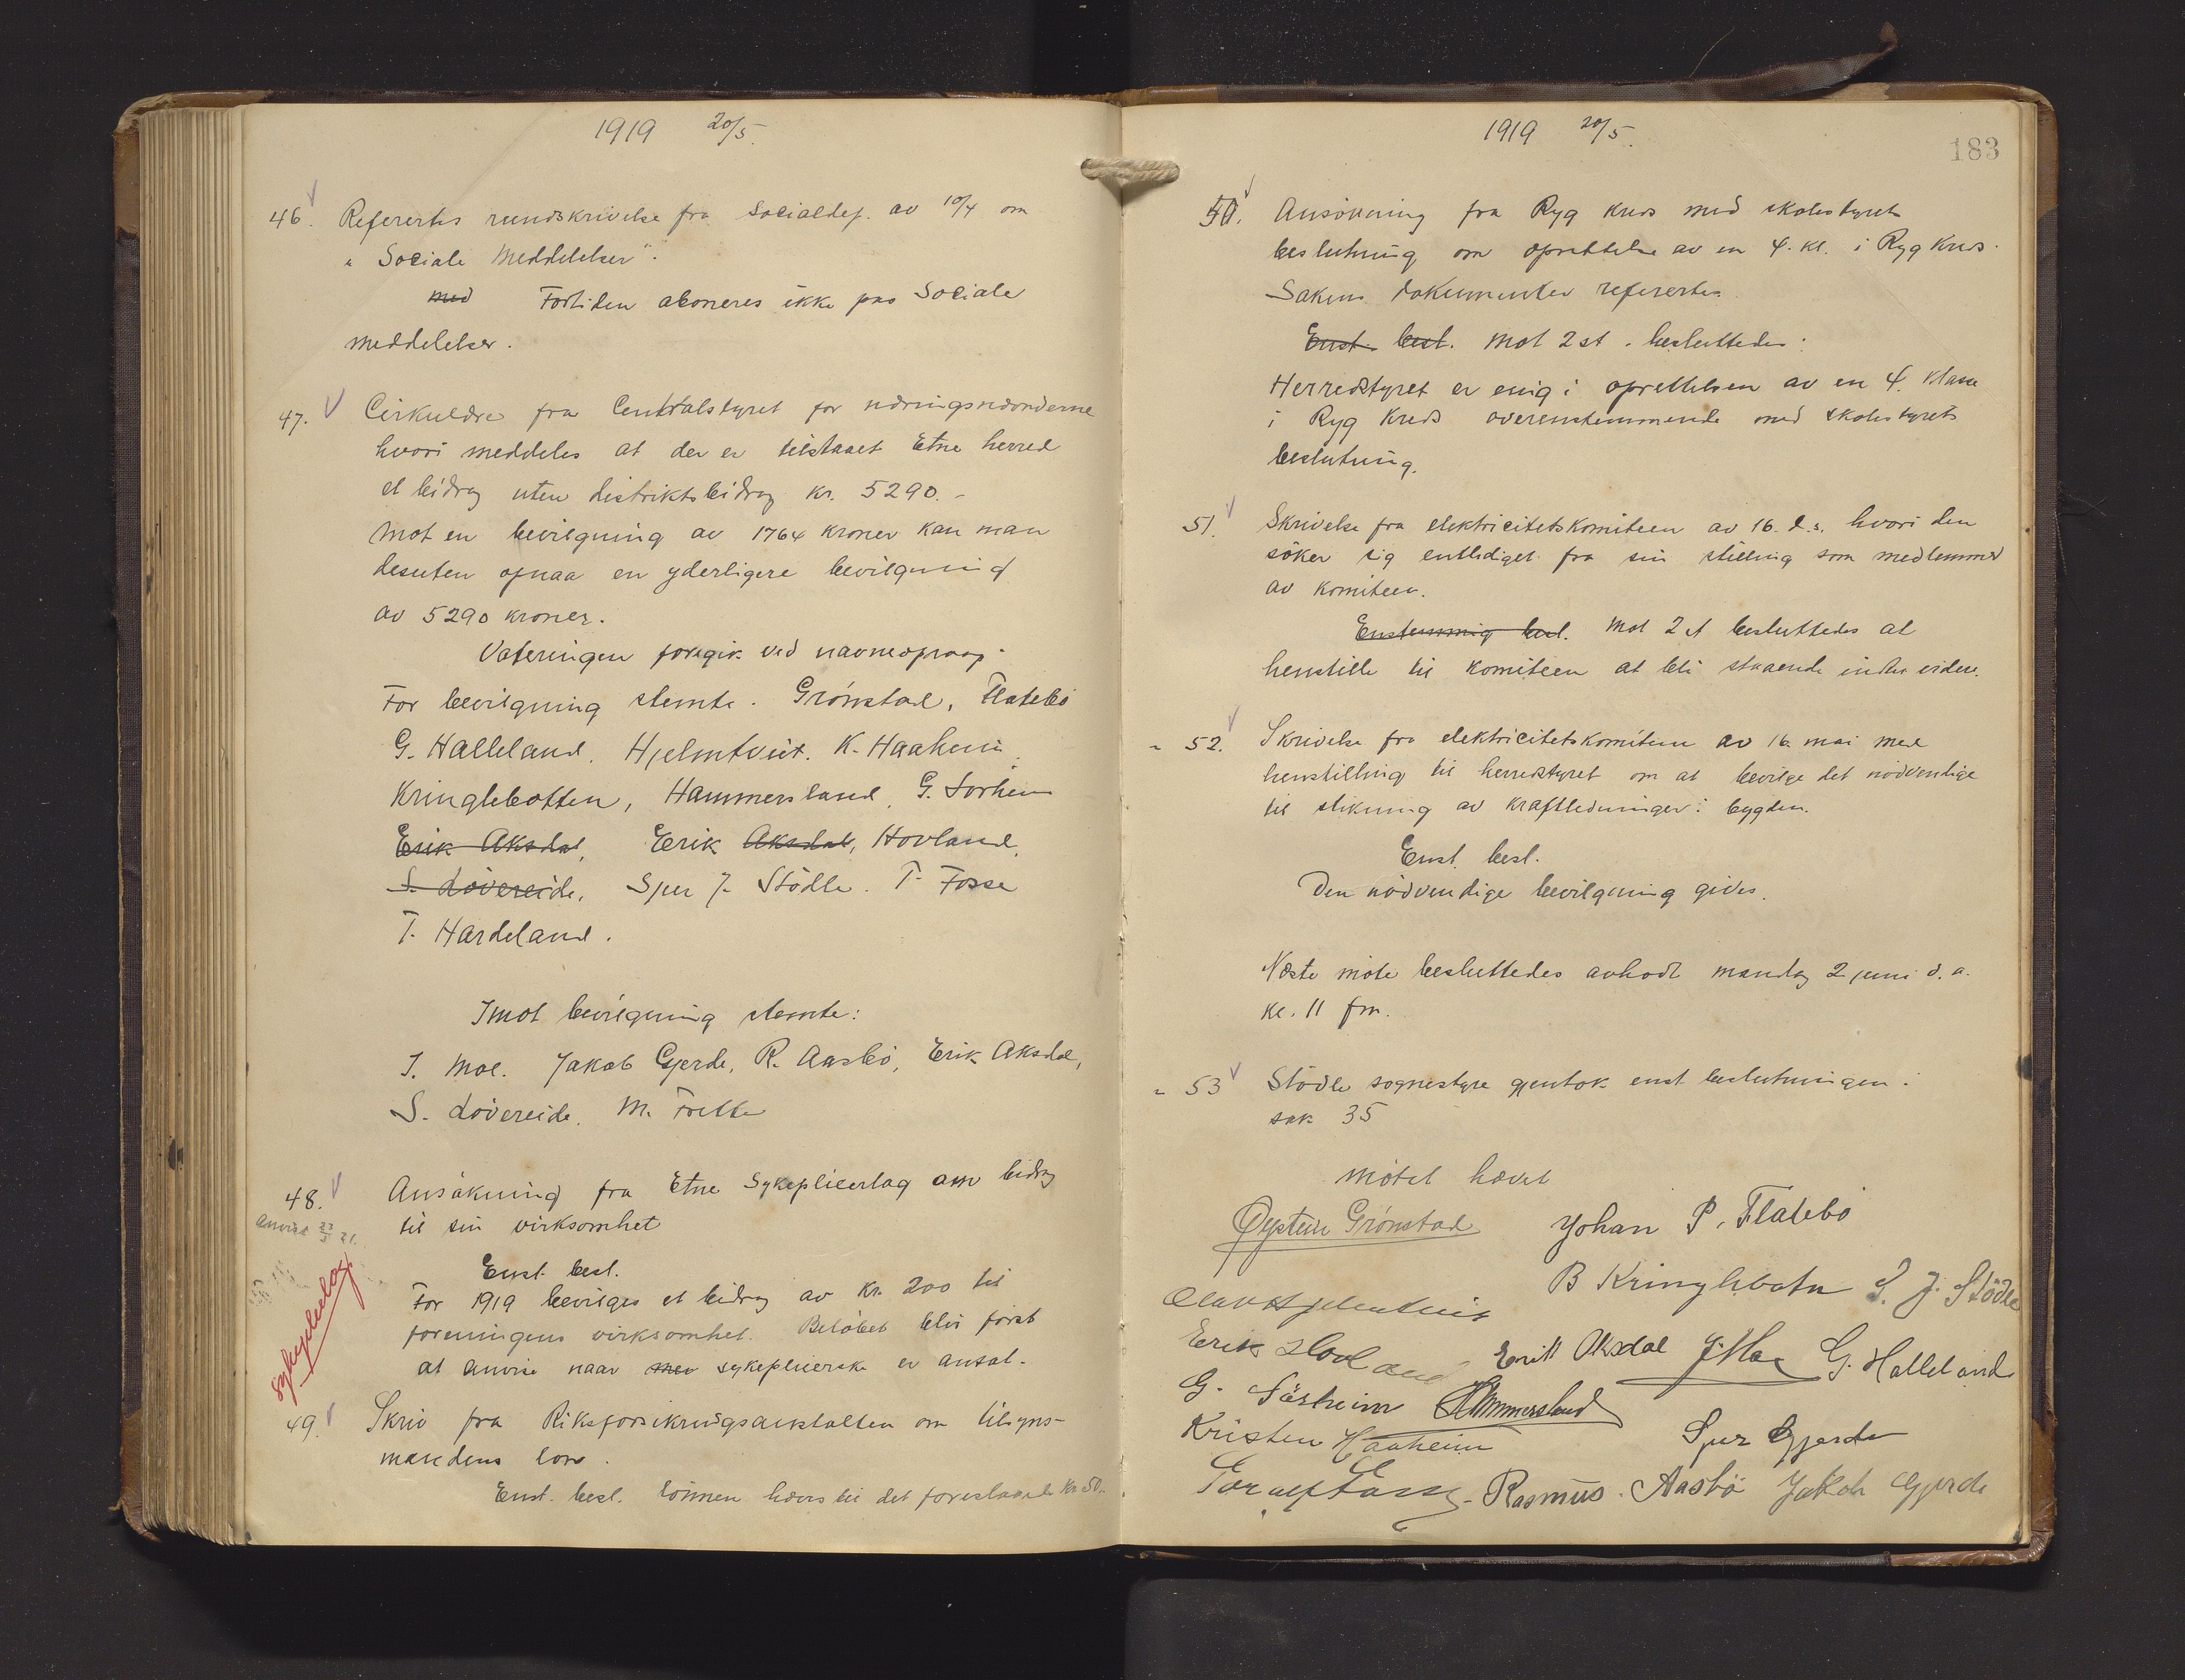 1919 20/5.
46. Referertes rundskrivelse fra Socialdep. av 10/4 om
"Sociale Meddelelser".
med Fortiden aboneres ikke paa Sociale
meddelelser.
47. Cirkulære fra Centralstyret for næringsnævnderne
hvori meddeles at der er tilstaaet Etne herred
et bidrag uten distriktsbidrag kr. 5290.-
Mot en bevilgning av 1764 kroner kan man
desuten opnaa en yderligere bevilgning
av 5290 kroner.
Voteringen foregik ved navneoprop.
For bevilgning stemte. Grönstad, Flatebö
G. Halleland, Hjelmtveit. K. Haaheim
Kringlebotten, Hammersland, G. Sörheim
Erik Aksdal, Erik Aksdal, Hovland,
S. Lövereide, Sjur J. Stödle. T. Fosse
T. Hardeland.
Imot bevilgning stemte:
J. Moe. Jakob Gjerde, R. Aasbö, Erik Aksdal,
S. Lövereide, M. Frette
48. Ansökning fra Etne Sykepleierlag om bidrag
Anvist 23/3 21.
til sin virksomhet
Enst. besl.
For 1919 bevilges et bidrag av kr. 200 til
foreningens virksomhet. Belöbet blir först
at anvise naar mer sykepleierske er ansat.
sykepleielag
49. Skriv fra Riksforsikringsanstalten om tilsyns-
mandens lön.
Enst. besl. Lönnen höves til det foreslaaede kr 50.-
1919 20/5.
183
50. Ansökning fra Ryg kreds med skolestyrets
beslutning om oprettelse av en 4. kl. i Ryg Kreds.
Sakens dokumenter refererte.
Enst. besl. Mot 2 st. besluttedes:
Herredstyret er enig i oprettelsen av en 4. klasse
i Ryg Kreds overenstemmende med skolestyrets
beslutning.
51. Skrivelse fra elektricitetskomiteen av 16. d.s. hvori den
söker sig entlediget fra sin stilling som medlemmer
av komiteen.
Enstemmig besl. Mot 2 st besluttedes at
henstille til komiteen at bli staaende inntil videre.
" 52. Skrivelse fra elektricitetskomiteen av 16. mai med
henstilling til herredstyret om at bevilge det nödvendige
til stikning av kraftledninger i bygden.
Enst. besl.
Den nödvendige bevilgning gives.
Næste möte besluttedes avholdt mandag 2 juni d. a.
kl. 11 fm.
" 53 Stödle sognestyre gjentok enst beslutningen i
sak 35
Mötet hævet
Öystein Grönstad Johan P. Flatebö
B Kringlebotn S. J. Stödle
Olav Hjelmtveit
Erik Hovland Erik Aksdal J. Moe G. Halleland
G. Sörheim Hammersland
Kristen Haaheim Sjur Gjerde
Toralf Fosse. Rasmus. Aasbö Jakob Gjerde